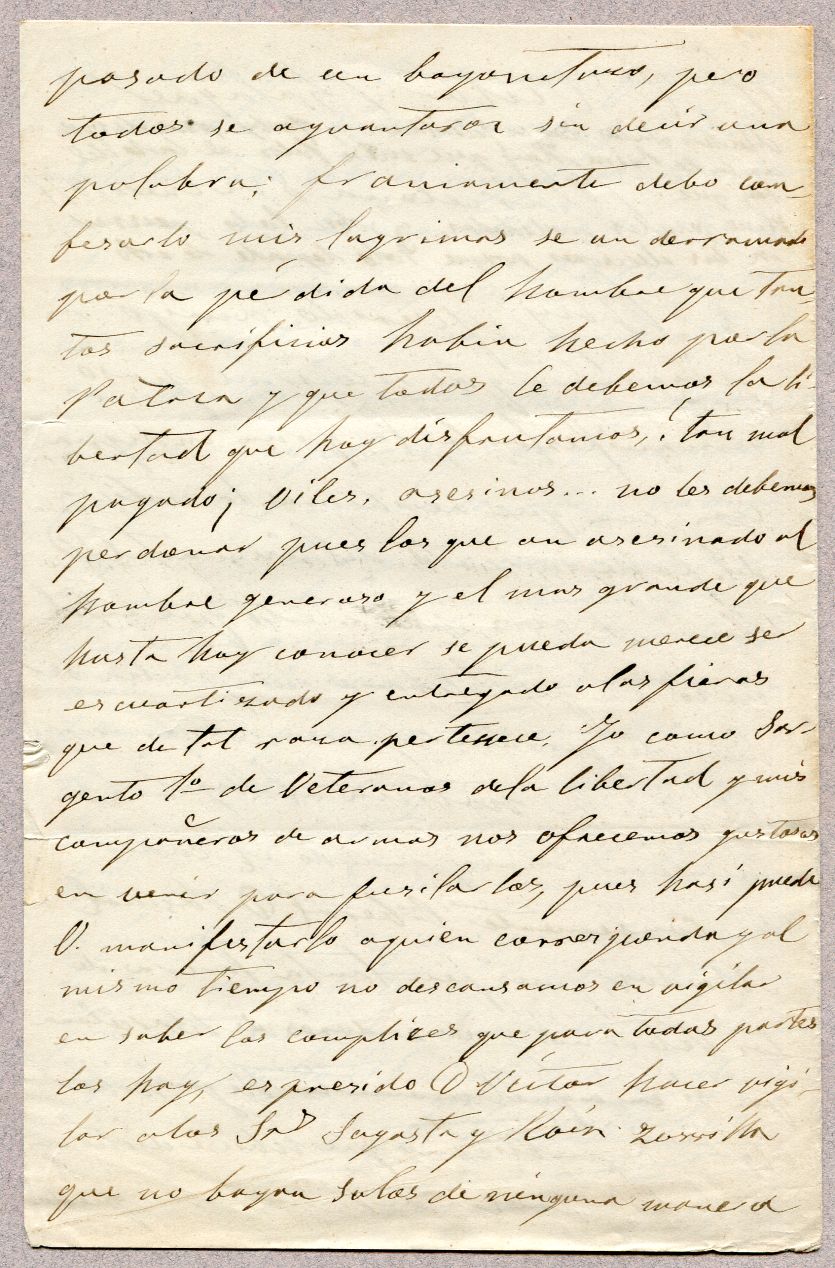 pasado de un bayonetazo, pero
todos se aguantaron sin decir una
palabra; francamente debo con-
fesarlo mis lagrimas se an derramado
por la pérdida del hombre que tan-
tos sacrificios habia hecho por la
Patria y que todos le debemos la li-
bertad que hoy disfrutamos, ¡tan mal
pagado¡ viles, asesinos... no les debemos
perdonar pues los que an asesinado al
hombre generoso y el mas grande que
hasta hoy conocer se pueda merece ser
escuartisado y entregado a las fieras
que de tal raza pertenece. Yo como Sar-
gento 1º de Veteranos de la libertad y mis
compañeros de armas nos ofrecemos gustosos
en venir para fusilarlos, pues hasi puede
V. manifestarlo a quien corresponda y al
mismo tiempo no descansamos en vigilar
en saber los complices que para todas partes
los hay, es presido D Víctor hacer vigi-
lar a los Srs Sagasta y Roiz Zorrilla
que no bayan solos de ninguna manera